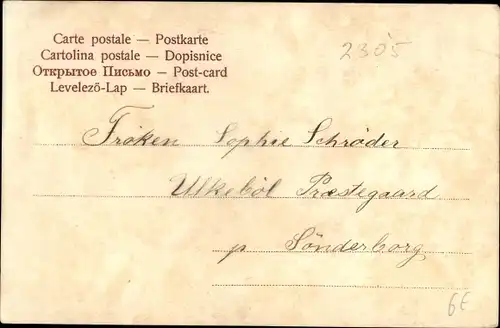 Carte postale — Postkarte
Cartolina postale — Dopisnice
Открытое Письмо — Post-card
Levelező-Lap — Briefkaart.
2305
Fröken Sophie Schrøder
Ulkeböl Præstegaard
p Sönderborg
6€